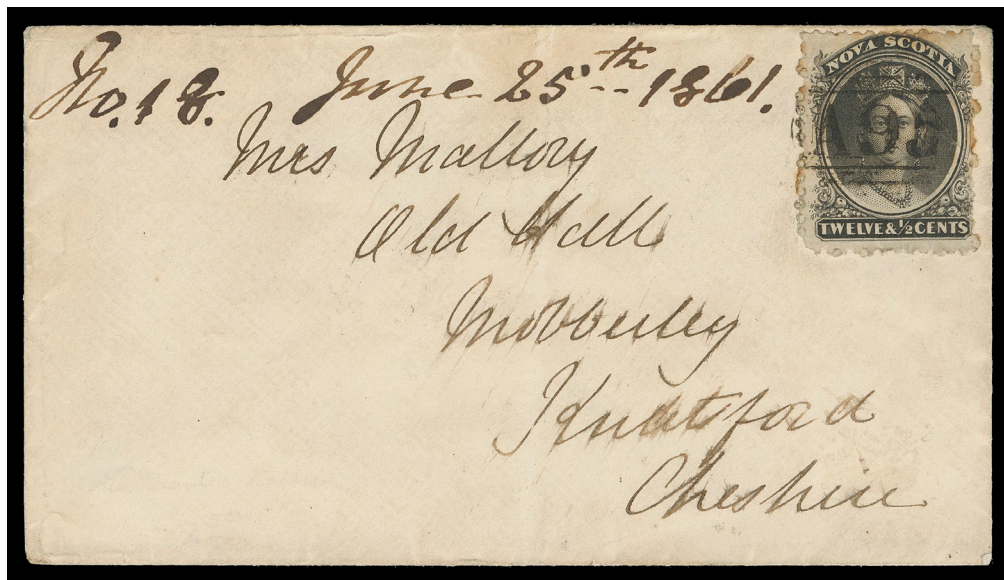 No. 18. June 25th 1861.
NOVA SCOTIA
A98
TWELVE & ½ CENTS
Mrs Mallory
Old Hall
Mobberley
Knutsford
Cheshire